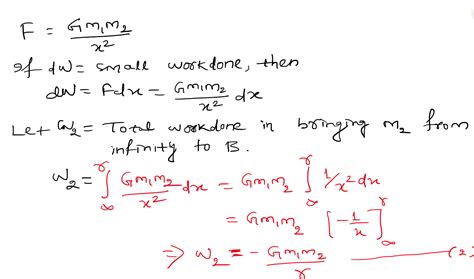 F = Gm₁m₂/x²
If dw = small workdone, then
dw = Fdx = Gm₁m₂/x² dx
Let W₂ = Total workdone in bringing m₂ from
infinity to B.
W₂ = ∫_∞^r Gm₁m₂/x² dx = Gm₁m₂ ∫_∞^r 1/x² dx
= Gm₁m₂ [-1/x]_∞^r
⇒ W₂ = - Gm₁m₂/r —— (2)